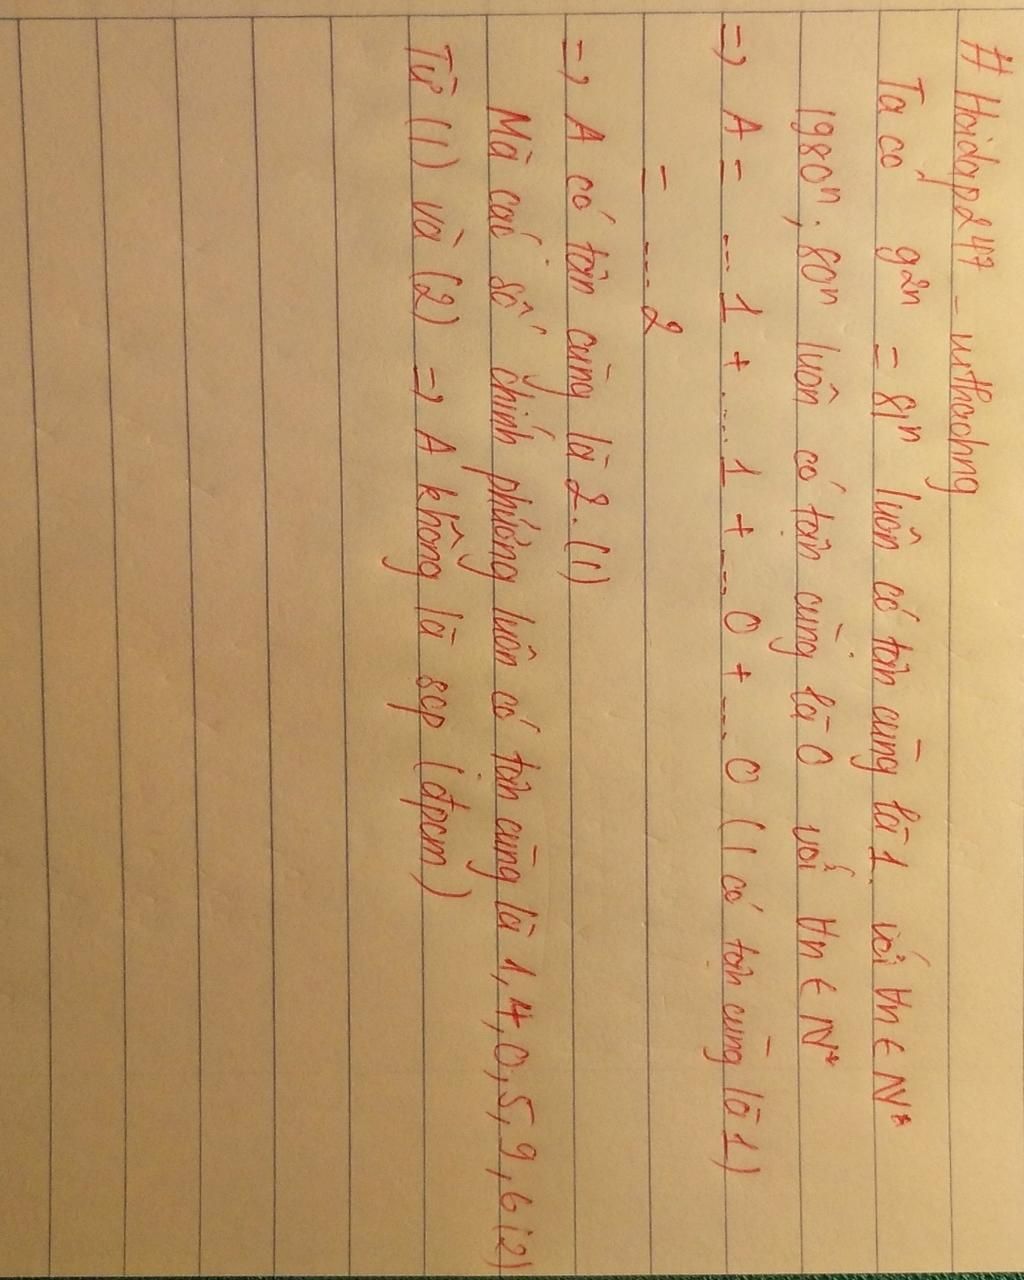 # Hoidap247 - mthaohng
Ta có 9²ⁿ = 81ⁿ luôn có tận cùng là 1. với ∀n ∈ N*
1980ⁿ, 80ⁿ luôn có tận cùng là 0 với ∀n ∈ N*
=> A = ...1 + ...1 + ...0 + ...0 (1 có tận cùng là 1)
= ...2
=> A có tận cùng là 2. (1)
Mà các số chính phương luôn có tận cùng là 1,4,0,5,9,6 (2)
Từ (1) và (2) => A không là scp (đpcm)